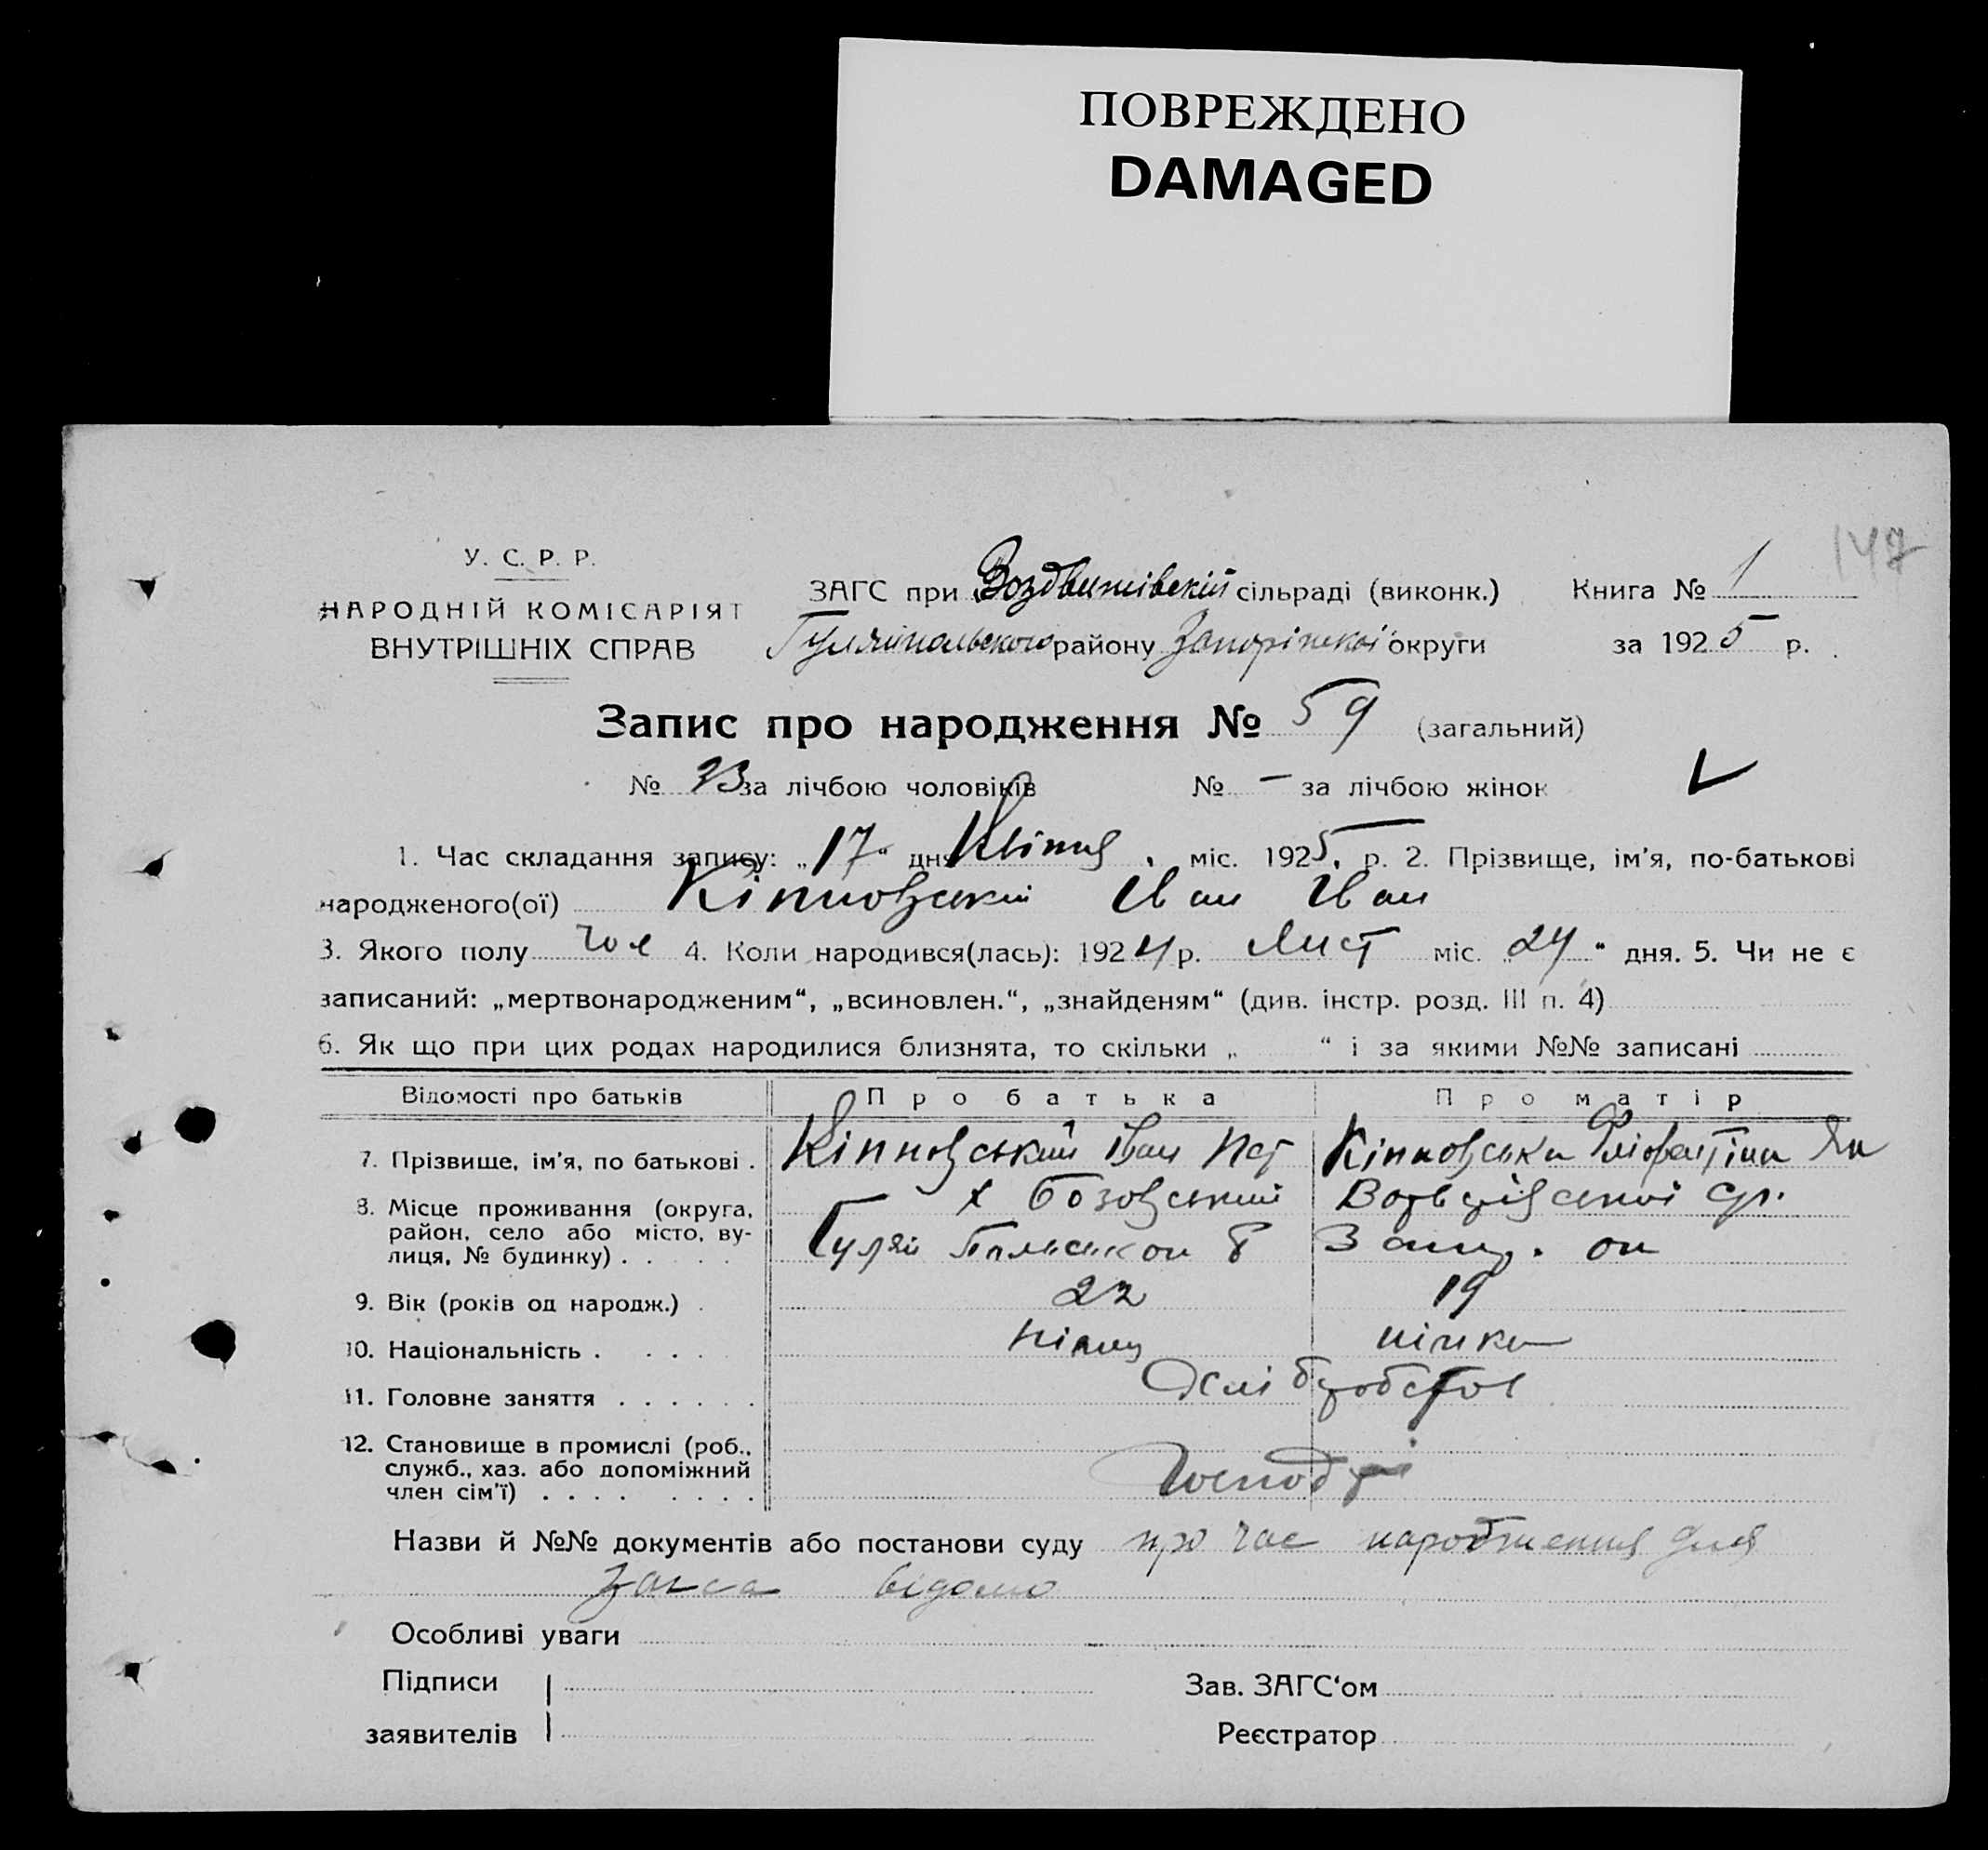 ПОВРЕЖДЕНО
DAMAGED
147
У. С. Р. Р.
НАРОДНІЙ КОМІСАРІЯТ
ВНУТРІШНІХ СПРАВ
ЗАГС при Воздвижівській сільраді (виконк.) Книга № 1
Гуляйпольського району Запоріжкої округи за 1925 р.
Запис про народження № 59 (загальний)
№ 33 за лічбою чоловіків № – за лічбою жінок
1. Час складання запису: „17“ дня Квітня міс. 1925 р. 2. Прізвище, ім’я, по-батькові
народженого(ої) Кіпновський Іван Іван
3. Якого полу чол 4. Коли народився(лась): 1924 р. Лист міс. „24“ дня. 5. Чи не є
записаний: „мертвонародженим“, „всиновлен.“, „знайденям“ (див. інстр. розд. III п. 4)
6. Як що при цих родах народилися близнята, то скільки „ “ і за якими №№ записані
Відомості про батьків Про батька Про матір
7. Прізвище, ім’я, по батькові . Кіпновський Іван Кіпновська
8. Місце проживання (округа, район, село або місто, вулиця, № будинку) . . . . . х Бозовський ср.
Гуляй Запор. ок
9. Вік (років од народж.) . 22 19
10. Національність . . . . німец німка
11. Головне заняття . . . . . .
12. Становище в промислі (роб., служб., хаз. або допоміжний член сім’ї) . . . . . . . . Господарі
Назви й №№ документів або постанови суду про час народження для
загса відомо
Особливі уваги
Підписи Зав. ЗАГС‘ом
заявителів Реєстратор